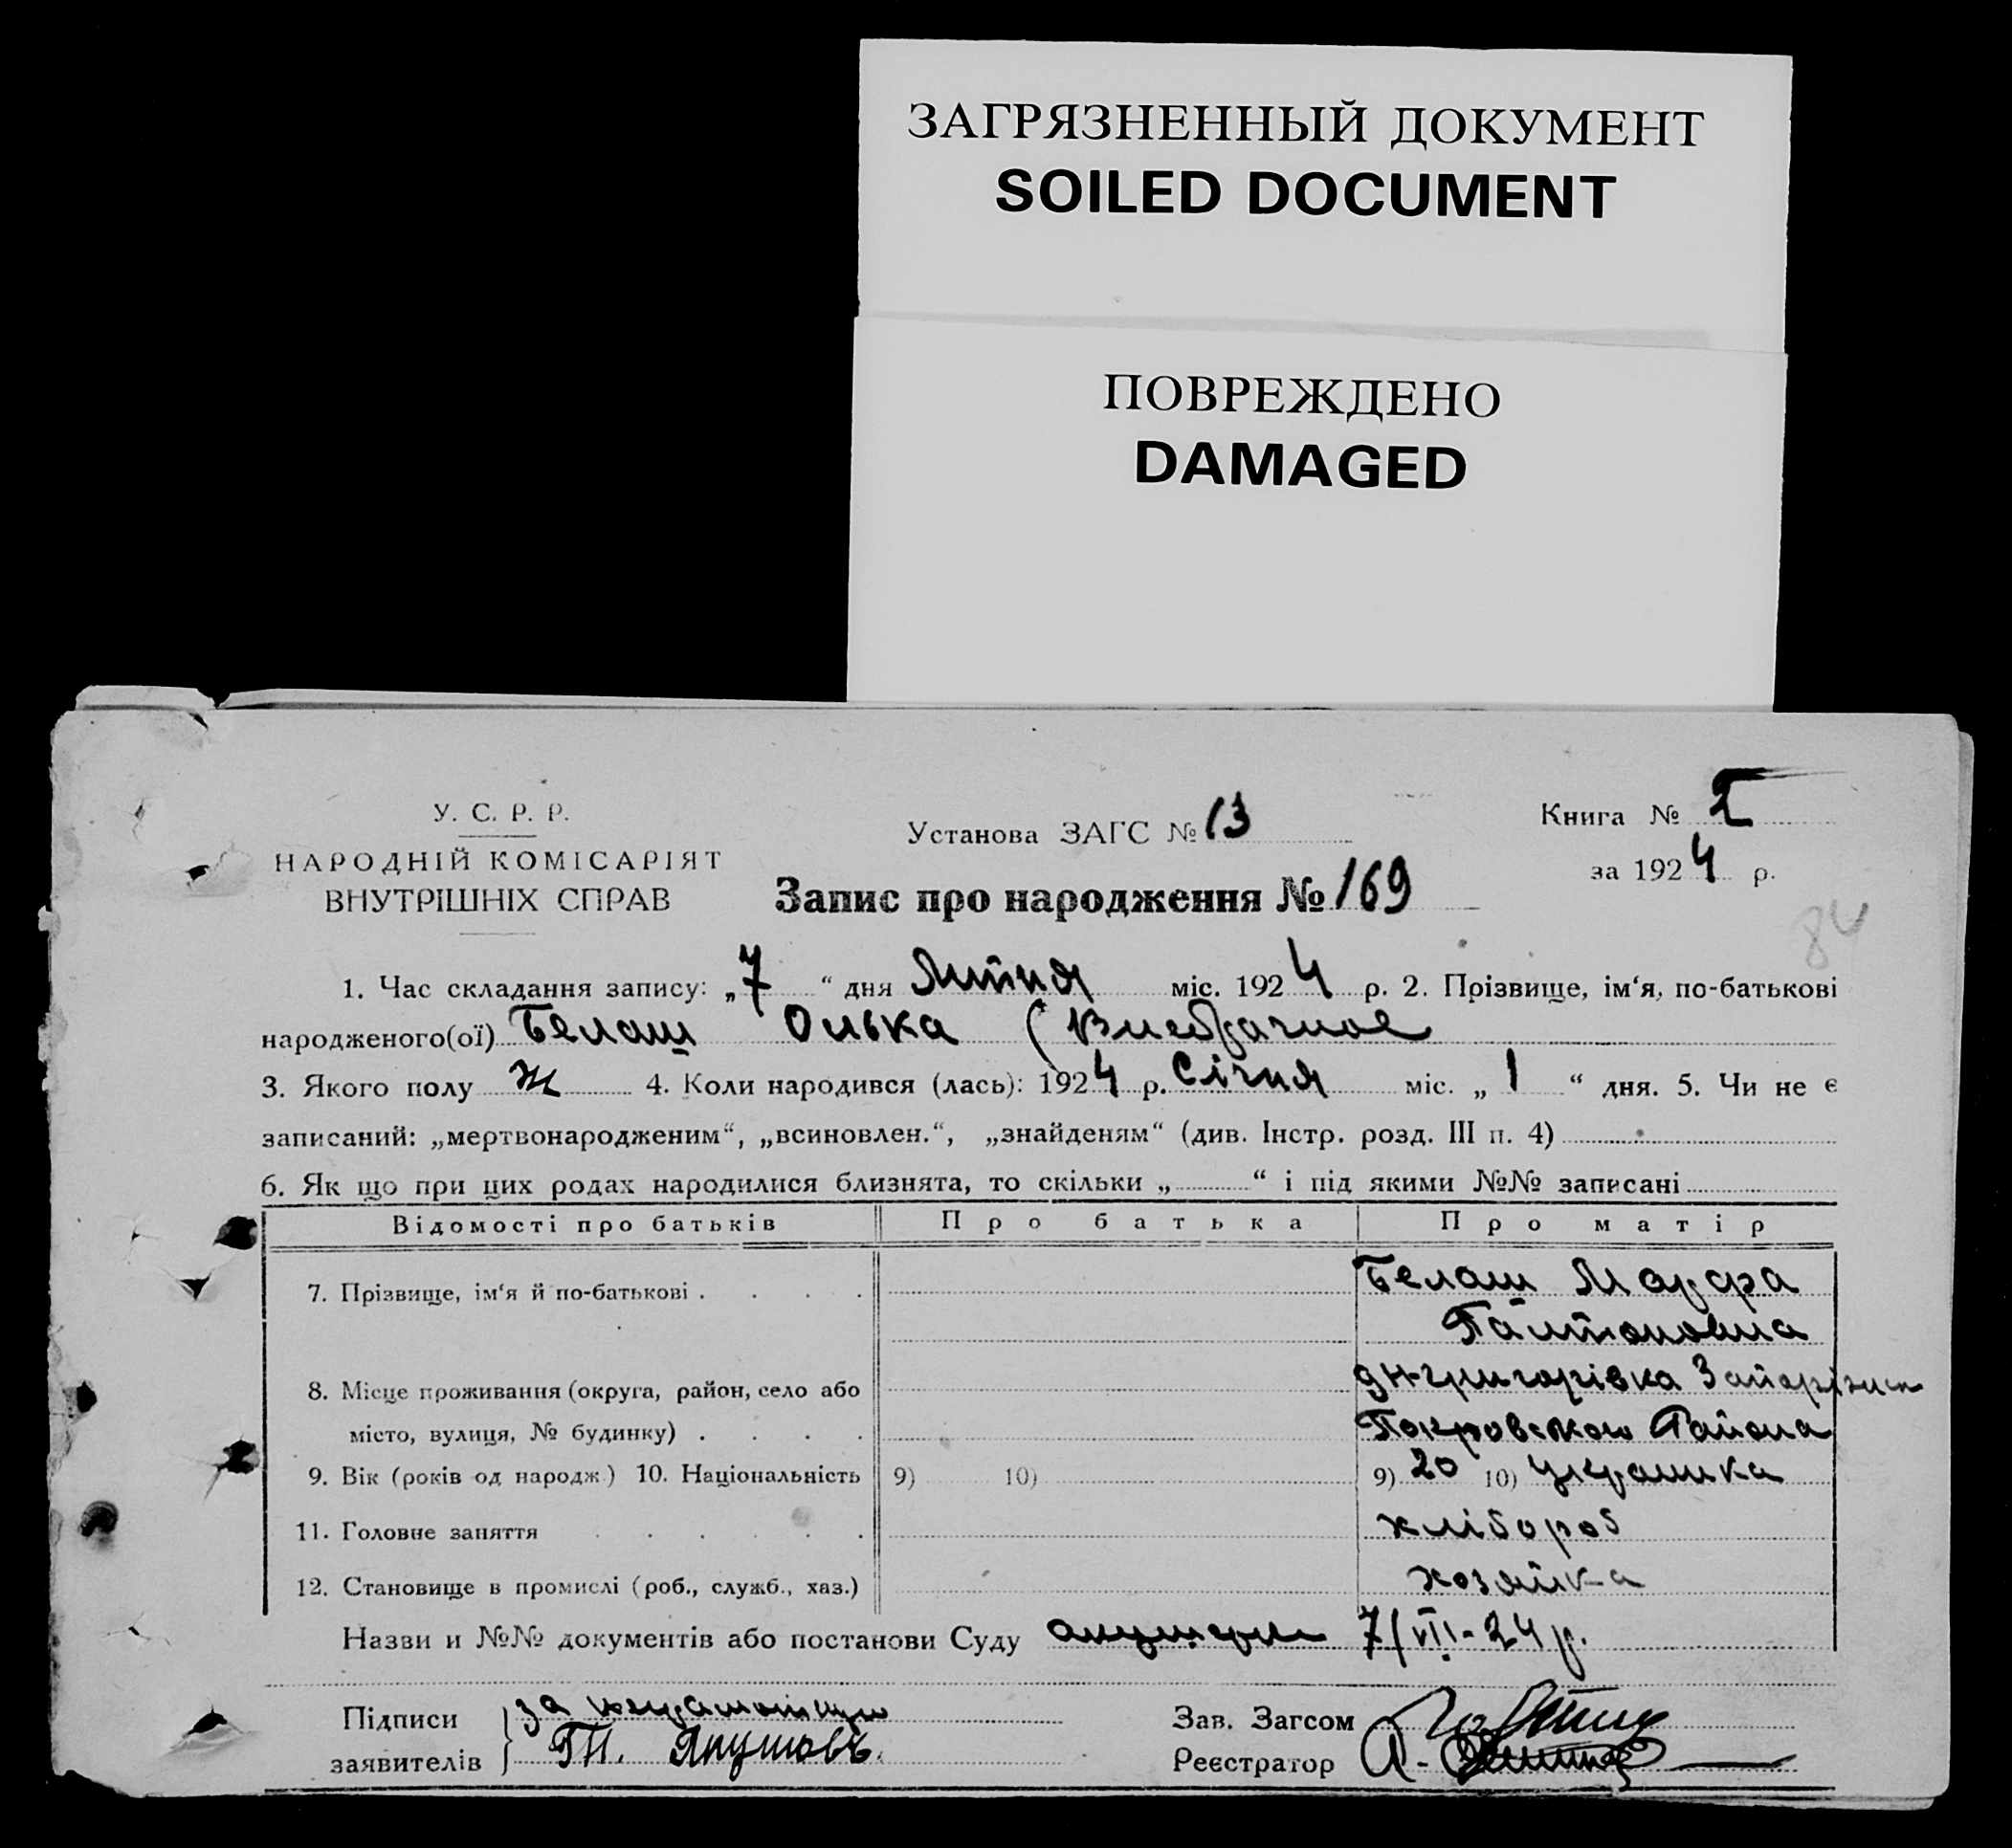 ЗАГРЯЗНЕННЫЙ ДОКУМЕНТ
SOILED DOCUMENT
ПОВРЕЖДЕНО
DAMAGED
У. С. Р. Р.
НАРОДНІЙ КОМІСАРІЯТ
ВНУТРІШНІХ СПРАВ
Установа ЗАГС № 13
Книга № I
за 1924 р.
Запис про народження № 169
84
1. Час складання запису: „7“ дня Липня міс. 1924 р. 2. Прізвище, ім‘я, по-батькові
народженого(ої) Белаш Олька (Внебрачное
3. Якого полу ж 4. Коли народився (лась): 1924 р. Січня міс. „1“ дня. 5. Чи не є
записаний: „мертвонародженим“, „всиновлен.“, „знайденям“ (див. Інстр. розд. III п. 4)
6. Як що при цих родах народилися близнята, то скільки „ “ і під якими №№ записані
Відомості про батьків Про батька Про матір
7. Прізвище, ім‘я й по-батькові . . . . Белаш Марфа
8. Місце проживання (округа, район, село або григорівка
місто, вулиця, № будинку) . . . . Покровского Района
9. Вік (років од народж.) 10. Національність 9) 10) 9) 20 10) Украинка
11. Головне заняття . . . . . хлібороб
12. Становище в промислі (роб., служб., хаз.) хозяйка
Назви и №№ документів або постанови Суду 7/VII-24 р.
Підписи за неграмотную
заявителів Якушовъ
Зав. Загсом
Реєстратор